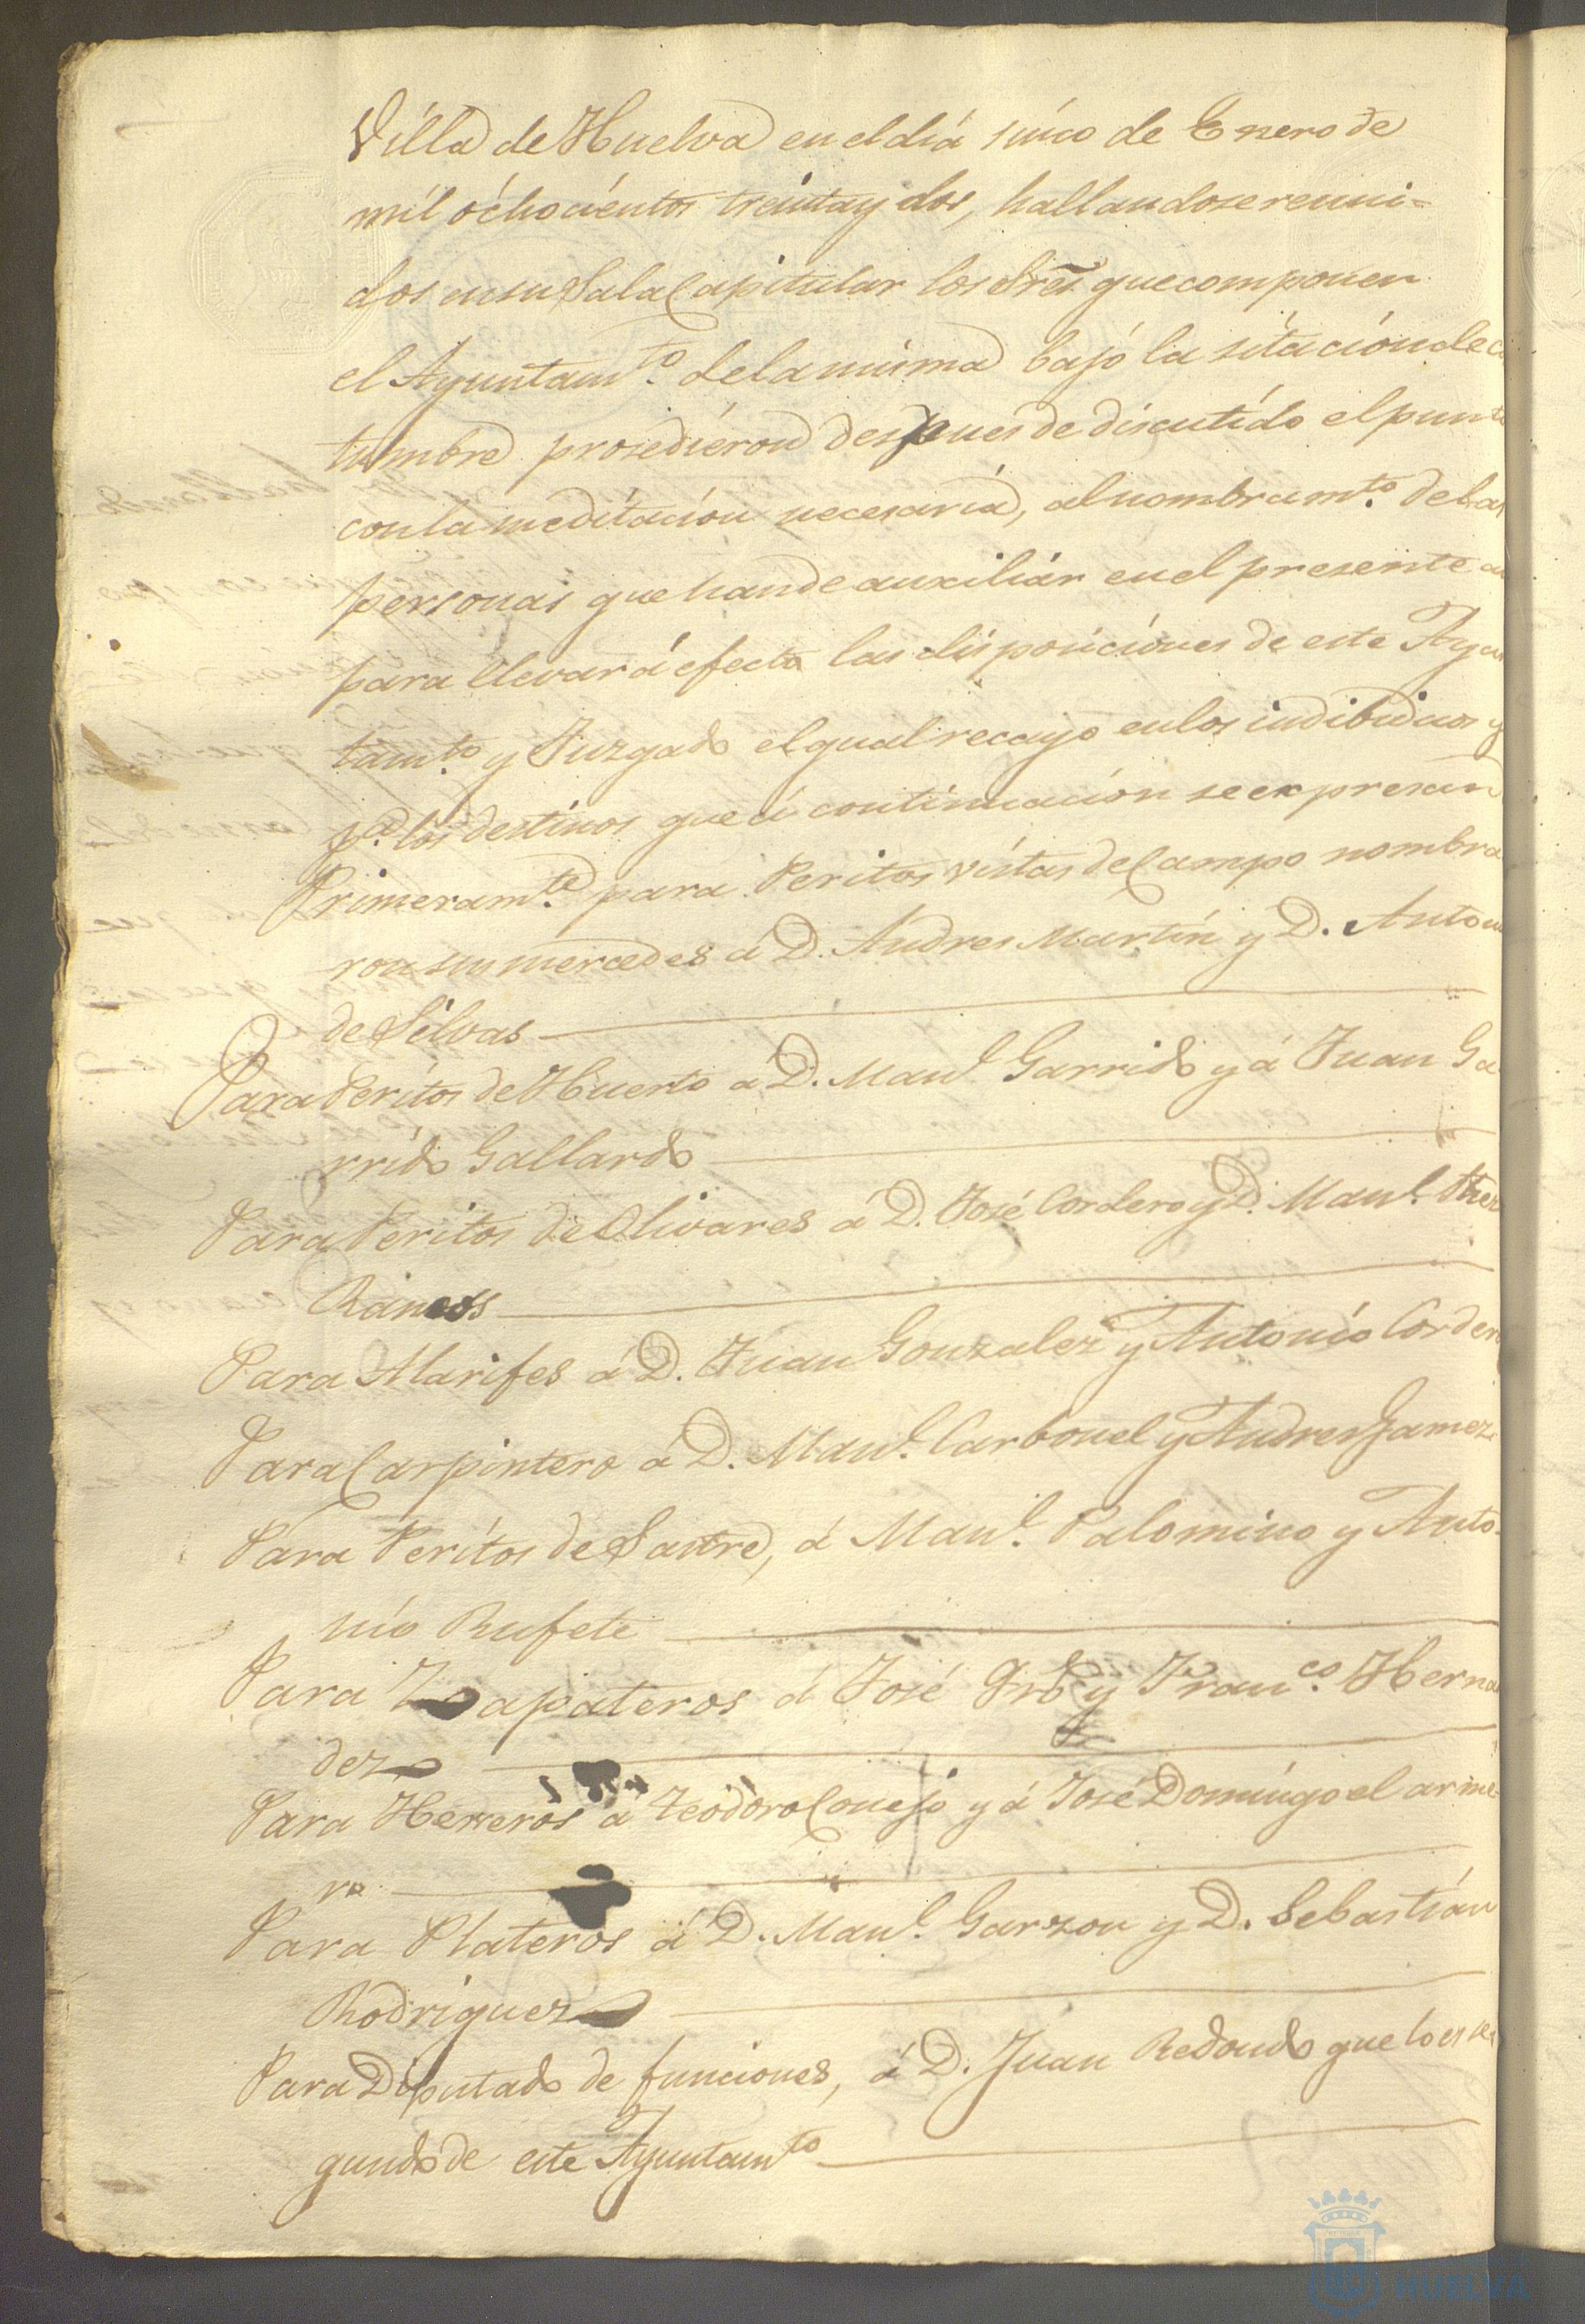 Villa de Huelva en el dia sinco de Enero de
mil óchocientos treinta y dos, hallandose reuni=
dos en su Sala Capitular los Sres. que componen
el Ayuntam.to de la misma bajo la sitación de co
tumbre prosedieron despues de discutido el punto
con la meditación necesaria, al nombram.to de las
personas que han de auxiliar en el presente
para llevar á efecto las disposiciones de este Ayun
tam.to y Juzgado el qual recayo en los indibiduos y
p.a los destinos que á continuación se expresan
Primeram.te para Peritos vistas de Campo nombra
ron sus mercedes á D. Andres Martin y D. Antonio
de Silvas
Para Peritos de Huerto a D. Man.l Garrido y á Juan Ga
rrido Gallardo
Para Peritos de Olivares á D. José Cordero y D. Man.l
Para Alarifes á D. Juan Gonzalez y Antonio Cordero
Para Carpintero á D. Man.l Carbonel y Andres Gamez
Para Peritos de Sastre, á Man.l Palomino y Anto-
nio Rufete
Para Zapateros á José y Fran.co Hernan
dez
Para Herreros á Teodoro Conejo y á José Domingo el arme-
ro
Para Plateros á D. Man.l Garzon y D. Sebastián
Rodriguez
Para Diputado de funciones, á D. Juan Redondo que lo es se
gundo de este Ayuntam.to
HUELVA